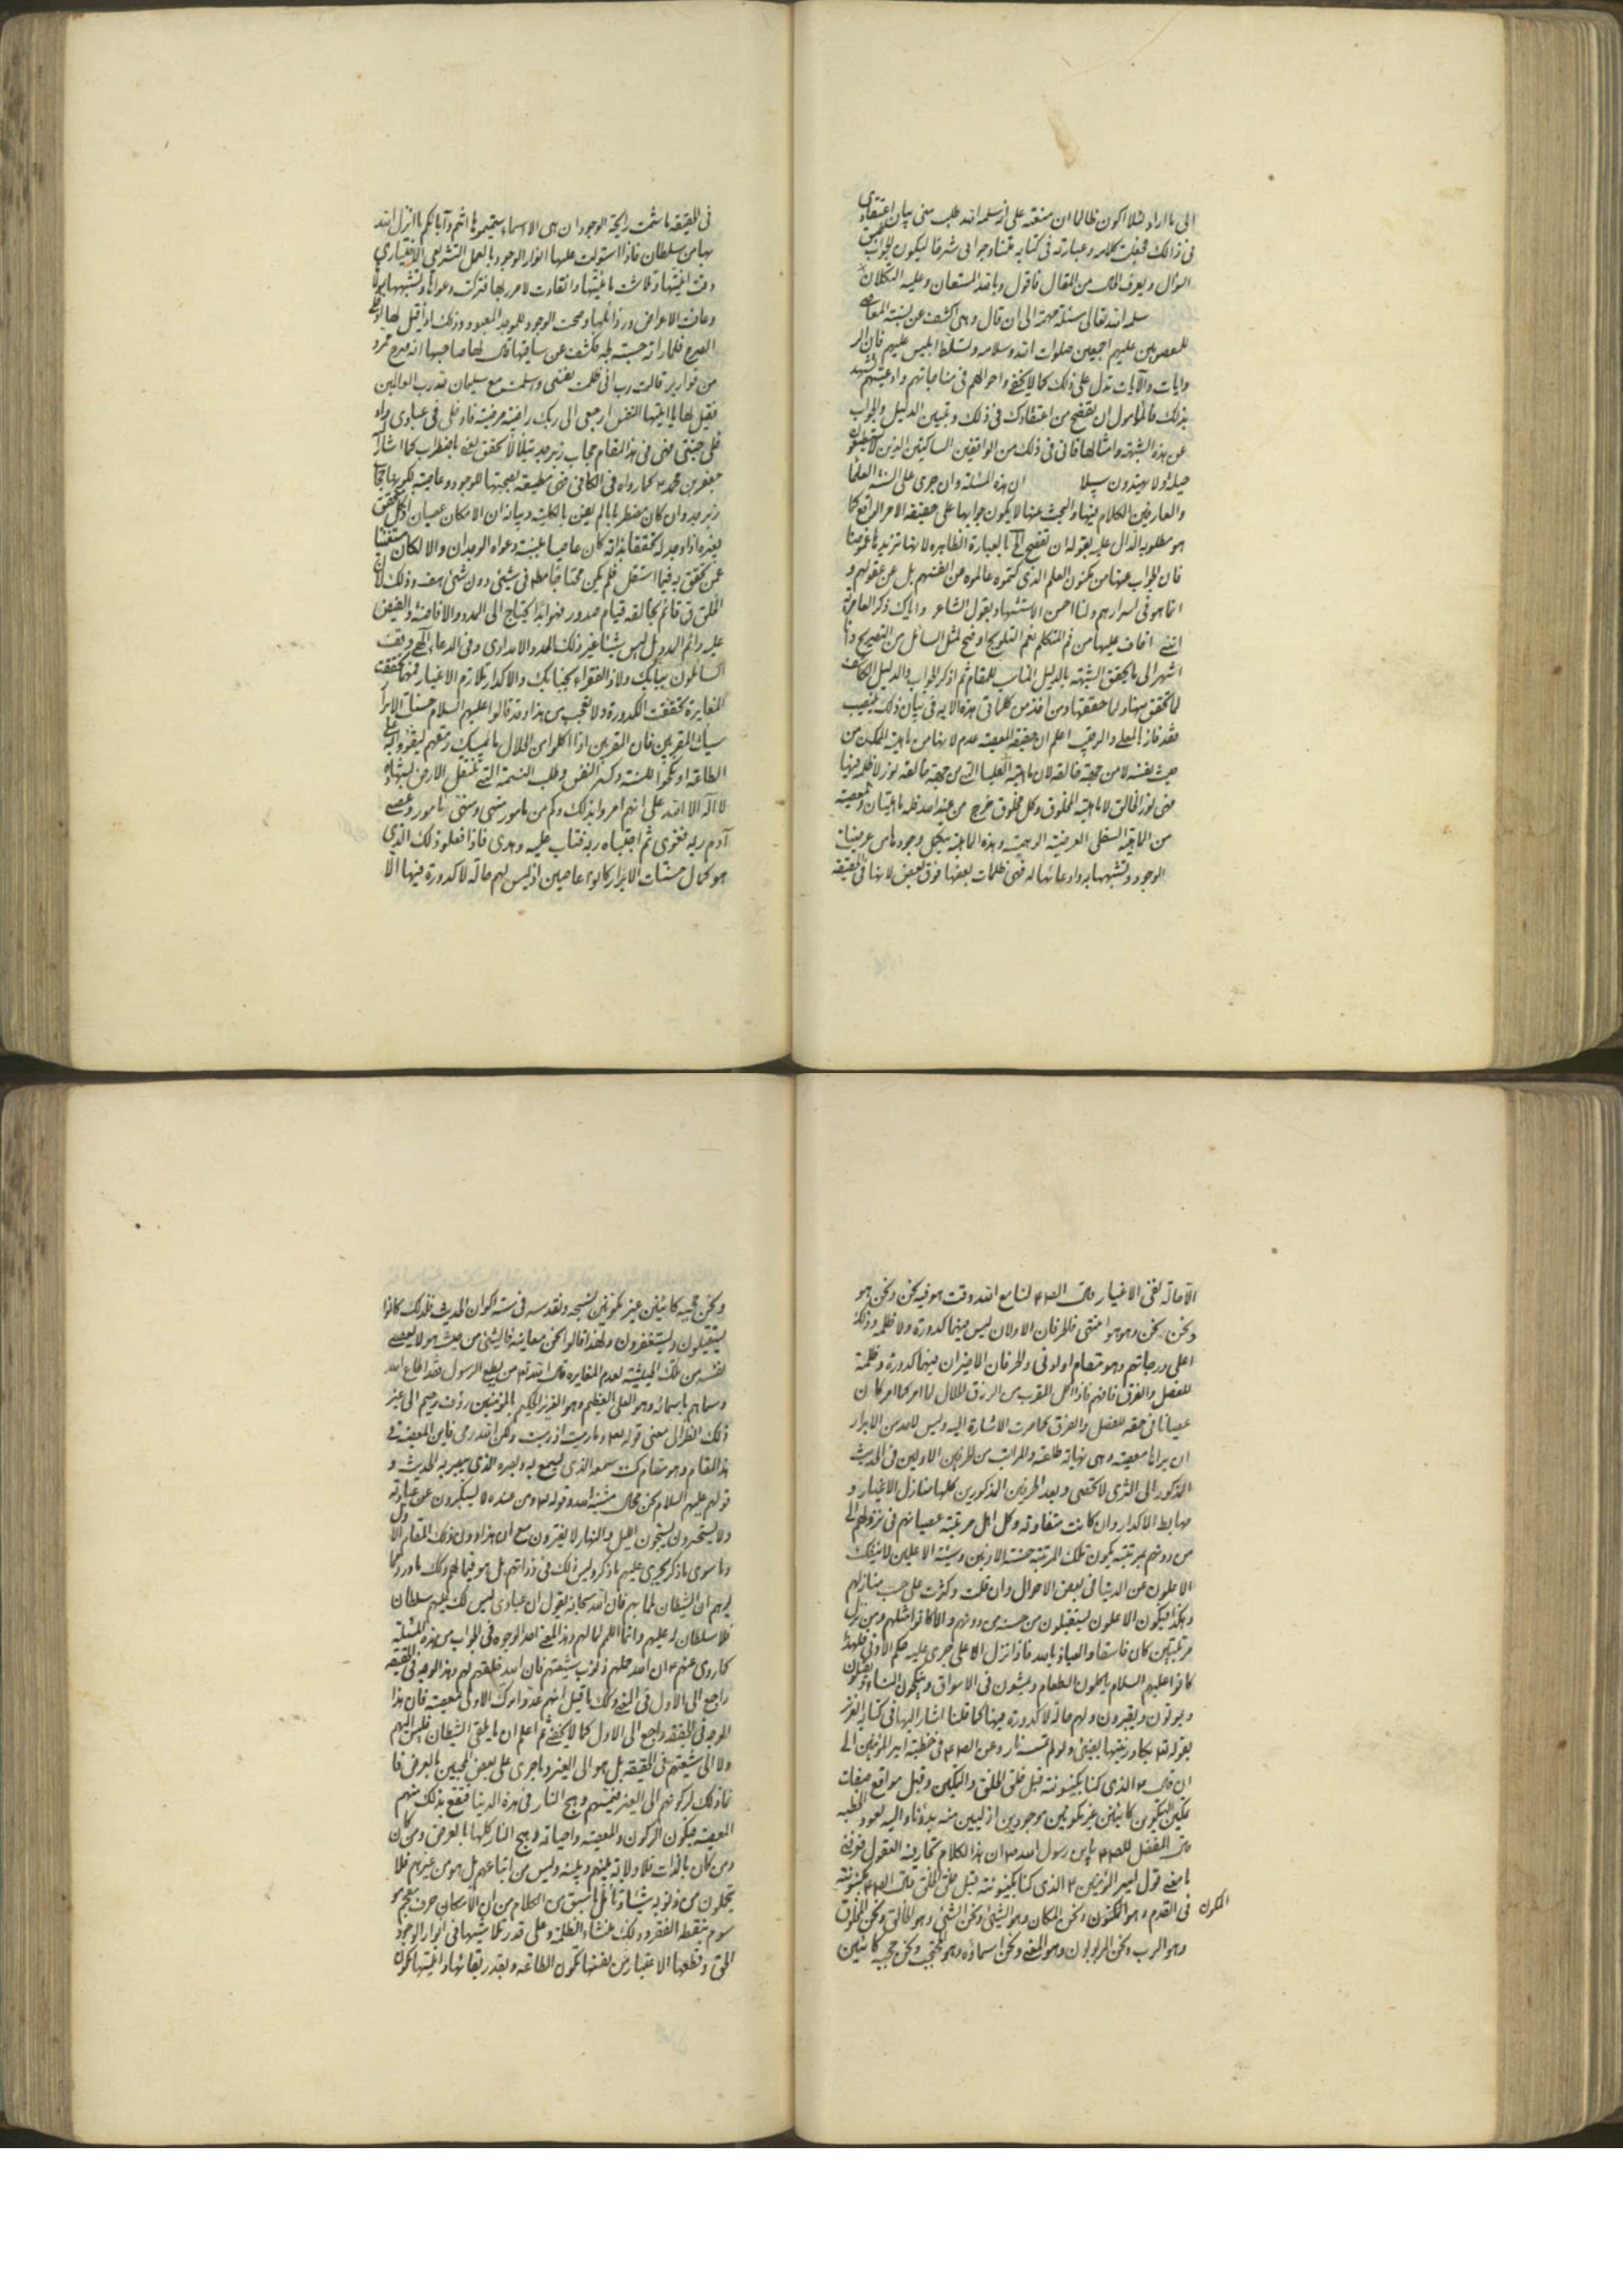 الى ما اراد لئلا اكون ظالما ان منعته على انه سلمه الله طلب منى بيان اعتقادى
فى ذالك فجعلت كلامه وعبارته فى كتابه متنا وجوابى شرحا ليكون الجواب
السؤال ويعرف الحال من المقال فاقول وبالله المستعان وعليه التكلان
سلمه الله تعالى مسئلة مهمة الى ان قال وهى اكشف عن نسبة المعاصى
للمعصومين عليهم اجمعين صلوات الله وسلامه وتسلط ابليس عليهم فان الر
وايات والآيات تدل على ذلك كما لا يخفى واحوالهم فى مناجاتهم وادعيتهم تشهد
بذلك فالمامول ان تفصح من اعتقادك فى ذلك وتبين الدليل والجواب
عن هذه الشبهة وامثالها فانى فى ذلك من الواقفين الساكتين الذين لا يستطيعون
حيلة ولا يهتدون سبيلا ان هذه المسئلة وان جرى على السنة العلماء
والعارفين الكلام فيها والبحث عنها لا يكون جوابها على حقيقة الامر الواقع كما
هو مطلوبه الدال عليه بقوله ان تفصح الخ بالعبارة الظاهرة لانها تزيدها غموضا
فان الجواب عنها من مكنون العلم الذى كتموه عالموه عن انفسهم بل عن عقولهم و
انما هو فى اسرارهم ولنا احسن الاستشهاد بقول الشاعر واياك ذكر العامرية
اننى اغار عليها من فم المتكلم نعم التلويح اوضح لمثل السائل من التصريح وانا
اشير الى ما يحقق الشبهة بالدليل المناسب للمقام ثم اذكر الجواب والدليل الكاشف
لما تحقق منها ولما حققتها ومن اخذ من كلماتى هذه الاية فى بيان ذلك بنصيب
فقد فاز بالمعلى والرقيب اعلم ان حقيقة المعصية عدم لانها من ماهية الممكن من
حيث نفسه لا من جهة خالقه لان ماهيته العليا التى من جهة خالقه نور لا ظلمة فيها
فهى نور الخالق لا ماهية المخلوق وكل مخلوق خرج من عند احد فله ماهيتان والمعصية
من الماهية السفلى العرضية الوهمية وهذه الماهية بكل وجودها من عرضيات
الوجود وتشبهها به وادعائها له فهى ظلمات بعضها فوق بعض لانها فى الحقيقة
فى الحقيقة ما شمت رايحة الوجود ان هى الا اسماء سميتموها انتم وآباؤكم ما انزل الله
بها من سلطان فاذا استولت عليها انوار الوجود بالعمل التشريعى الاختيارى
وقت انيتها وتلاشت ماهيتها وانقادت لامر ربها فتركت دعواها وتشبهها بمولاها
وعافت الاعراض ورذائلها ومحت الوجود للموجد المعبود وذلك اذا قيل لها ادخلى
الصرح فلما راته حسبته لجة وكشفت عن ساقيها قال لها صاحبها انه صرح ممرد
من قوارير قالت رب انى ظلمت نفسى واسلمت مع سليمان لله رب العالمين
فقيل لها يا ايتها النفس ارجعى الى ربك راضية مرضية فادخلى فى عبادى واد
خلى جنتى فهى فى هذا المقام حجاب زبرجد يتلألأ تخفق بغير اضطراب كما اشار
جعفر بن محمد ع كما رواه فى الكافى فهى مطيعة بصحبتها للوجود وعاصية بكونها حجابا
زبرجد وان كان مضطربا بالم يفن بالكلية وبيانه ان الامكان عصيان اذ كل متحقق
بغيره اذا وجد له تحققا بذاته كان عاصيا بنسبة دعواه الوجدان والا لكان مستغنيا
عمن تحقق به فيما استقل فلم يكن محتاجا مطلقا فى شيئ دون شيئ هف وذلك لان
الخلق قائم بخالقه قيام صدور فهو ابدا يحتاج الى المدد والافاضة والفيض
عليه دائم المدد بل ليس شيئا غير ذلك المدد والامدادى وفى الدعاء الهى وقف
السائلون ببابك ولاذ الفقراء بجنابك والاكدار تلازم الاغيار فمهما تحققت
المغايرة تحققت الكدورة ولا تعجب من هذا وقد قالوا عليهم السلام حسنات الابرار
سيئات المقربين فان المقربين اذا اكلوا من الحلال ما يمسك رمقهم ليقووا به على
الطاعة او نكحوا للسنة وكسر النفس وطلب النسمة التى تثقل الارض بشهادة
لا اله الا الله على انهم امروا بذلك وكم من مامور منهى ومنهى مامور وعصى
آدم ربه فغوى ثم اجتباه ربه فتاب عليه وهدى فاذا فعلوا ذلك الذى
هو كمال حسنات الابرار كانوا عاصين اذ ليس لهم حالة لا كدورة فيها الا
الاحالة لفنى الاغيار قال الص ع لنا مع الله وقت هو فيه نحن ونحن هو
ونحن نحن وهو هو انتهى فالحرفان الاولان ليس فيهما كدورة ولا ظلمة وذلك
اعلى درجاتهم وهو مقام او ادنى والحرفان الاخيران فيهما كدورة وظلمة
للفصل والفرق فافهم فاذا اكل المقرب من الرزق الحلال لما امر كما امر كان
عصيانا فى حقه للفصل والفرق كما مرت الاشارة اليه وليس لاحد من الابرار
ان يراها معصية وهى نهاية طلعته والمراتب من الحرفين الاولين فى الحديث
المذكور الى الثرى لا تحصى وبعد الحرفين المذكورين كلها منازل الاغيار و
مهابط الاكدار وان كانت متفاوتة وكل اهل مرتبة عصيانهم فى نزولهم الى
من دونهم بمرتبة يكون تلك المرتبة حسنة الادنين وسيئة الاعلين لا ينفك
الاعلون عن الدنيا فى بعض الاحوال وان قلت وكثرت على حسب منازلهم
وهكذا فيكون الاعلون يستقبلون من حسنة من دونهم والا كانوا مثلهم ومن نزل
مرتبتين كان فاسقا والعياذ بالله فاذا نزل الاعلى جرى عليه حكم الادنى فلهذا
كانوا عليهم السلام ياكلون الطعام ويمشون فى الاسواق وينكحون النساء
ويولون ويقبرون ولهم حالة لا كدورة فيها كما قلنا اشار اليها فى كتابه العزيز
بقوله تع يكاد زيتها يضيئ ولو لم تمسسه نار وعن الص ع فى خطبة امير المؤمنين الى
ان قال والذى كنا بكينونته قبل خلق الخلق والتكين وقبل مواقع صفات
تمكين التكوين كائنين غير مكونين موجودين ازليين منه بدونا واليه نعود الخطبة
قال المفضل للص ع يابن رسول الله ص ان هذا الكلام تحار فيه العقول فعرفنى
ما معنى قول امير المؤمنين ع الذى كنا بكينونته قبل خلق الخلق قال الص ع كينونته
فى القدم وهو المكون ونحن المكان وهو المشيئ ونحن الشيئ وهو الخالق ونحن المخلوق
المكون
وهو الرب ونحن المربوبون وهو المعنى ونحن اسماؤه وهو المحتجب ونحن حجبه كائنين
ونحن حجبه كائنين غير مكونين نسبحه ونقدسه فى ستة اكوان الحديث فلذلك كانوا
يستقيلون ويستغفرون ولهذا قالوا نحن معاينه فالشيئ من حيث هو لا يعصى
نفسه من تلك الحيثية لعدم المغايره قال الله تع من يطع الرسول فقد اطاع الله
وسماهم باسمائه وهو العلى العظيم وهو العزيز الحكيم بالمؤمنين رؤف رحيم الى غير
ذلك انظر الى معنى قوله تع وما رميت اذ رميت ولكن الله رمى فاين المعصية فى
هذا المقام وهو مقام كنت سمعه الذى يسمع به وبصره الذى يبصر به الحديث و
قولهم عليهم السلام نحن محال مشية الله وقوله تع ومن عنده لا يستكبرون عن عبادته
ولا يستحسرون يسبحون الليل والنهار لا يفترون مع ان هذا دون ذلك المقام الا
وما سوى ما ذكر يجرى عليهم ما ذكر وليس ذلك فى ذواتهم بل هو فيما لهم وذلك ما ورد كما
ليرهم ان الشيطان لما بهم فان الله سبحانه يقول ان عبادى ليس لك عليهم سلطان
فلا سلطان له عليهم وانما اللمم لما لهم وهذا المعنى احد الوجوه فى الجواب من هذه المسئلة
كما روى عنهم ع ان الله حملهم ذنوب شيعتهم فان الله خلقهم لهم وهذا الوجه فى الحقيقة
راجع الى الاول فى المعنى وذلك ما قيل انهم عدوا ترك الاولى معصية فان هذا
الوجه فى الحقيقة راجع الى الاول كما لا يخفى ثم اعلم ان ما يلقى الشيطان فليس اليهم
ولا الى شيعتهم فى الحقيقة بل هو الى الغير وما جرى على بعض المحبين بالعرض فا
نما ذلك لركونهم الى الغير فتمسهم وهج النار فى هذه الدنيا فتقع بذلك منهم
المعصية فيكون الركون والمعصية واصابة وهج النار كلها بالعرض ومن كان
ومن كان بالذات فلا ولاية بينهم وبينه وليس من اتباعهم بل هو من غيرهم فلا
يحملون من ذنوبه شيئا وتامل ما سبق من الكلام من ان الامكان حرف معجم مو
سوم بنقط الفقر وذلك منشاء الظلمة وعلى قدر تلاشيها فى انوار الوجود
الحق وقطعها الاعتبار من نفسها تكون الطاعة وبقدر بقائها وانيتها تكون